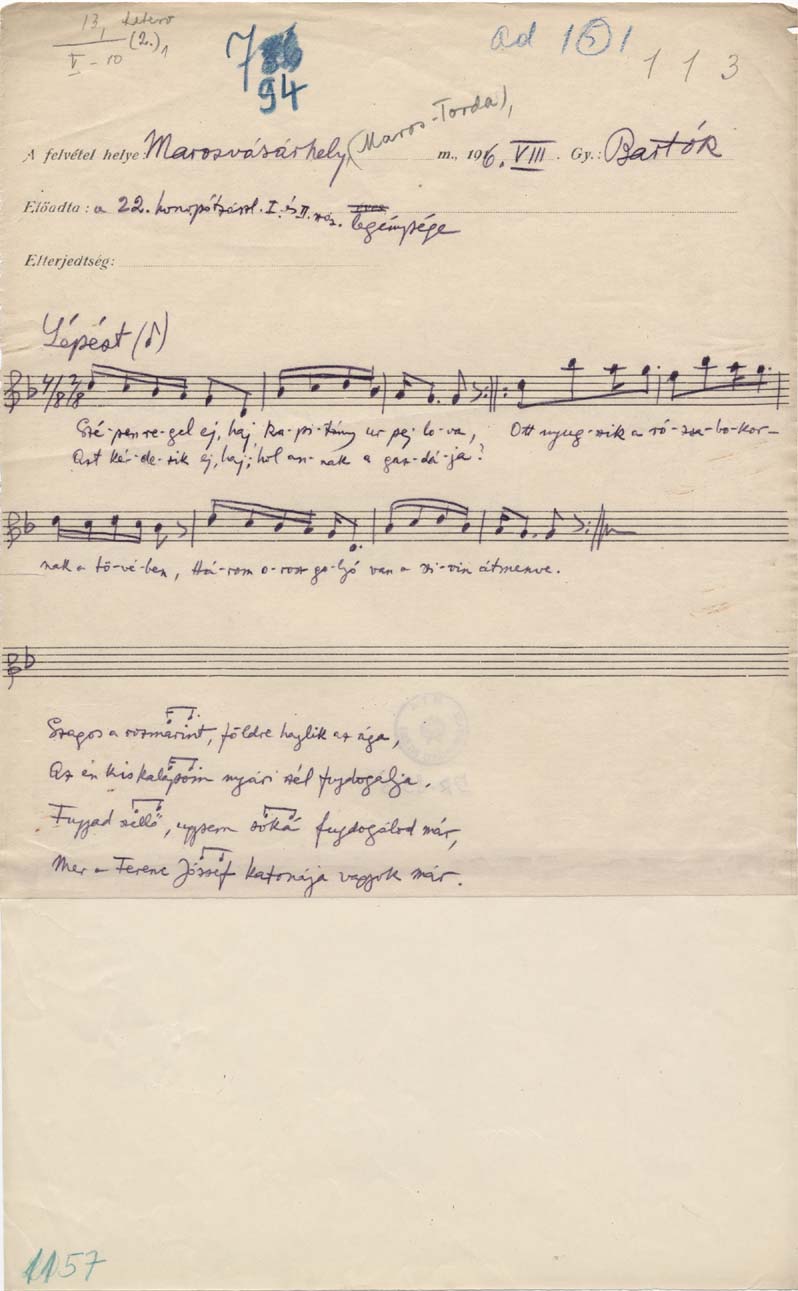 13, hetero
V-10 (2.) 1
7
94
ad 151
113
A felvétel helye Marosvásárhely (Maros-Torda), m., 1916. VIII. Gy.: Bartók
Előadta: a 22. I. és II. legénysége
Elterjedtség:
Lépést (♪)
4/8 3/8
Szé-pen re-gel ej, haj ka-pi-tány ur pej lo-va, Ott nyug-szik a ró-zsa-bo-kor-
Azt kér-de-zik ej, haj; hol an-nak a gaz-dá-ja?
nak a tö-vé-ben, Há-rom o-rosz go-lyó van a szi-vin átmenve.
Szagos a rozmarint, földre hajlik az ága,
Az én kis kalapom nyári szél fujdogálja.
Fujjad szellő, ugysem soká fujdogálod már,
Mer a Ferenc József katonája vagyok már.
1157